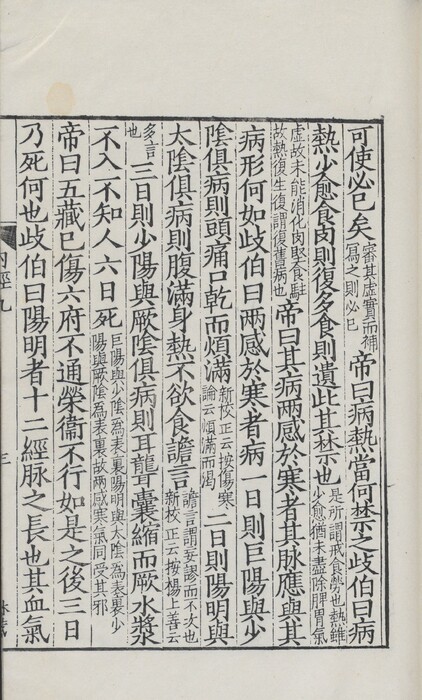 可使必已矣審其虛實而補寫之則必已帝曰病熱當何禁之歧伯曰病
熱少愈食肉則復多食則遺此其禁也是所謂戒食勞也熱雖少愈猶未盡除脾胃氣
虛故未能消化肉堅食駐故熱復生復謂復舊病也帝曰其病兩感於寒者其脉應與其
病形何如歧伯曰兩感於寒者病一日則巨陽與少
陰俱病則頭痛口乾而煩滿新校正云按傷寒論云煩滿而渴二日則陽明與
太陰俱病則腹滿身熱不欲食譫言譫言謂妄謬而不次也新校正云按楊上善云
多言也三日則少陽與厥陰俱病則耳聾囊縮而厥水漿
不入不知人六日死巨陽與少陰為表裏陽明與太陰為表裏少陽與厥陰為表裏故兩感寒氣同受其邪
帝曰五藏已傷六府不通榮衞不行如是之後三日
乃死何也歧伯曰陽明者十二經脉之長也其血氣
經九
三